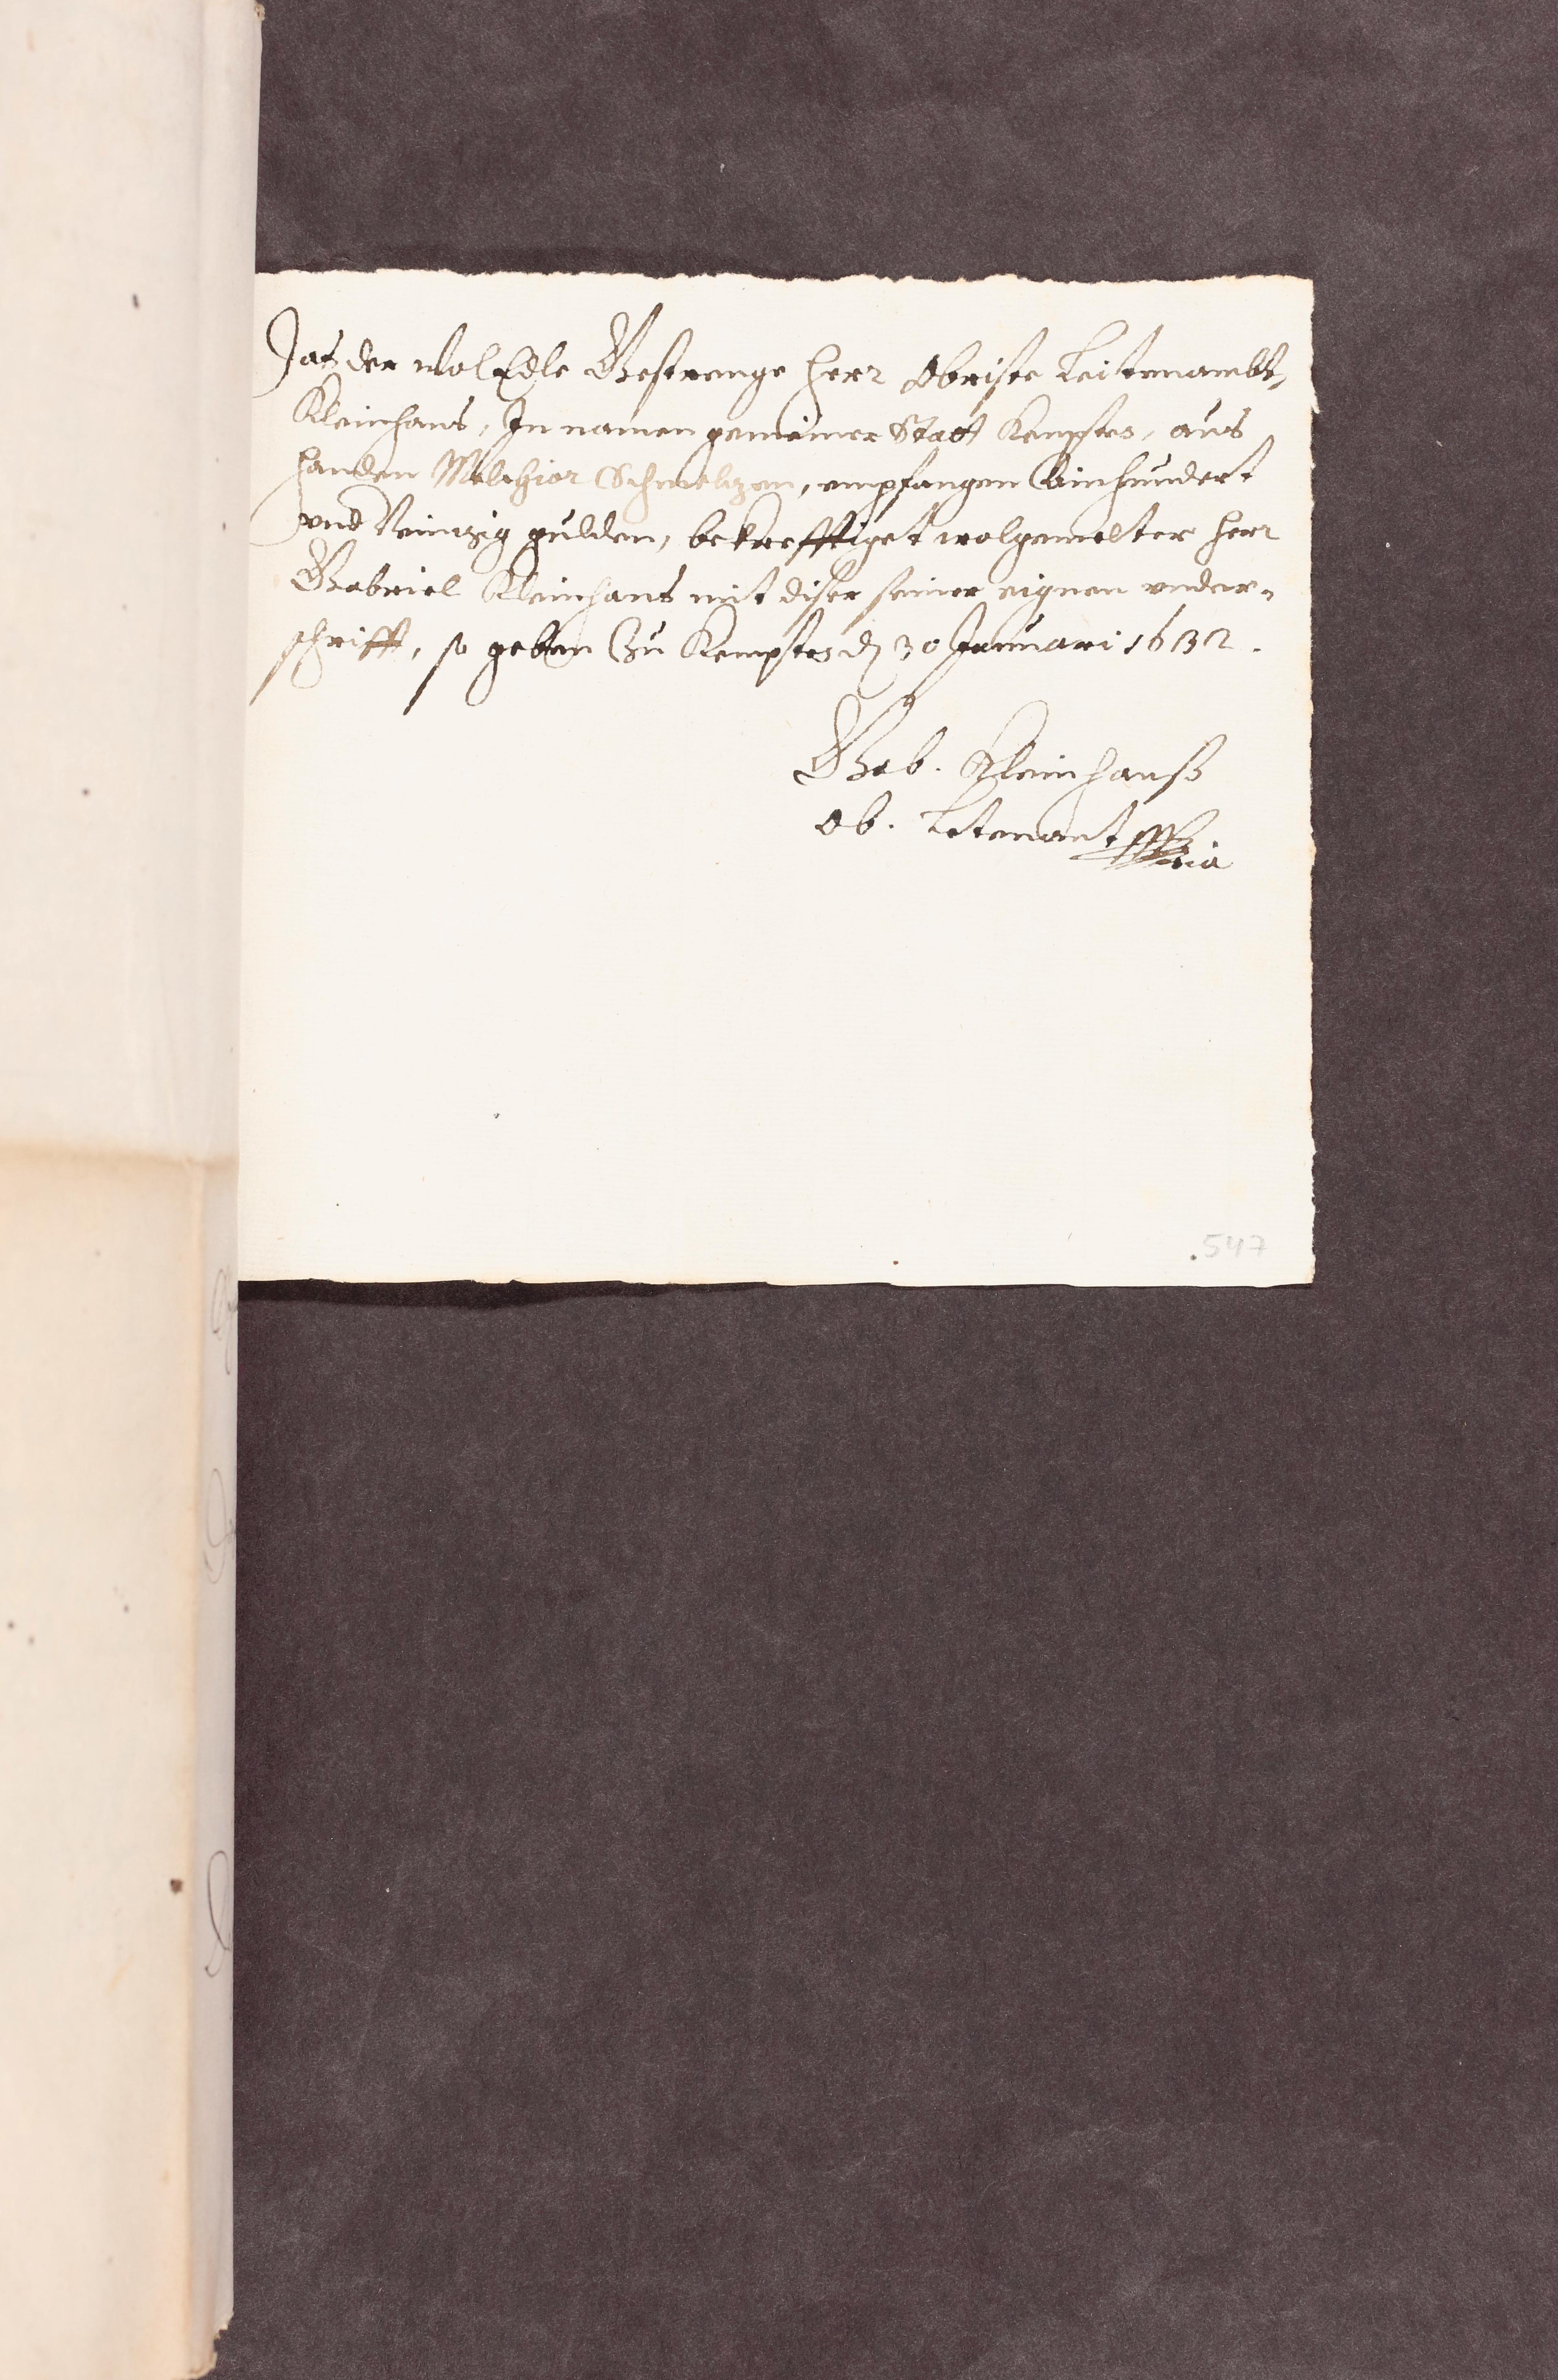 Hat der wol Edle Gestrenge Herr Obriste Leitenambt,
Kleinhans, In namen gemeiner Statt Kempten, aus
handen Melchior Schmeltzen, empfangen Ainhundert
vnd Neintzig gulden, bekrefftiget wolgemelter Herr
Gabriel Kleinhans mit diser seiner eignen vnder-
schrifft, so geben Zu Kempten dn 30 Januari 1632.
Gab. Kleinhanß
Ob. Letenant
547